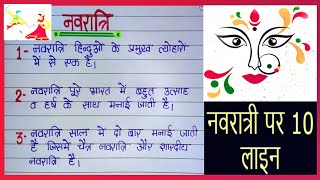 नवरात्रि
1- नवरात्रि हिन्दुओं के प्रमुख त्योहारों
में से एक है।
2- नवरात्रि पूरे भारत में बहुत उत्साह
व हर्ष के साथ मनाई जाती है।
3- नवरात्रि साल में दो बार मनाई जाती
है जिसमें चैत्र नवरात्रि और शारदीय
नवरात्रि है।
नवरात्री पर 10
लाइन